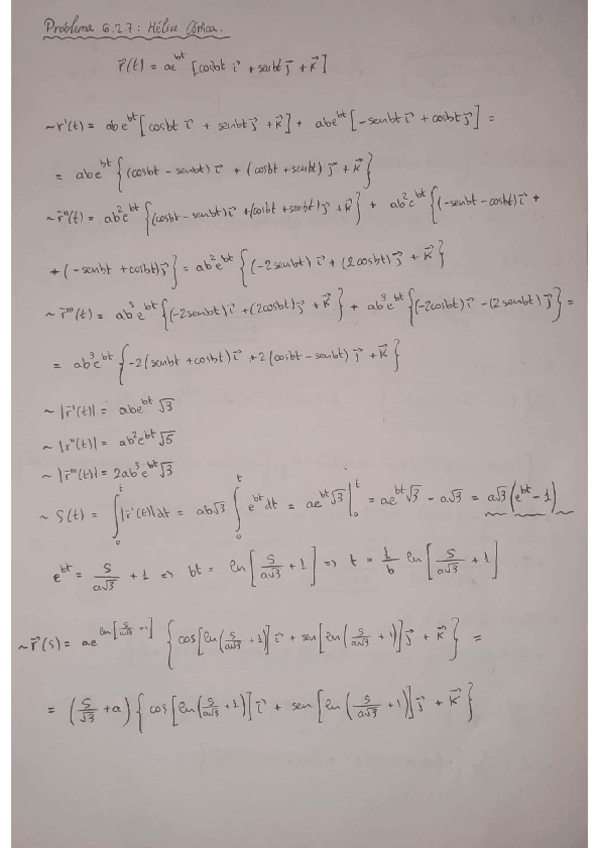 Problema 6.27: Hélice Cónica.
r⃗(t) = ae^bt [cosbt i⃗ + senbt j⃗ + k⃗]
~ r'(t) = abe^bt [cosbt i⃗ + senbt j⃗ + k⃗] + abe^bt [-senbt i⃗ + cosbt j⃗] =
= abe^bt {(cosbt - senbt) i⃗ + (cosbt + senbt) j⃗ + k⃗}
~ r⃗''(t) = ab²e^bt {(cosbt - senbt) i⃗ + (cosbt + senbt) j⃗ + k⃗} + ab²e^bt {(-senbt - cosbt) i⃗ +
+ (-senbt + cosbt) j⃗} = ab²e^bt {(-2senbt) i⃗ + (2cosbt) j⃗ + k⃗}
~ r⃗'''(t) = ab³e^bt {(-2senbt) i⃗ + (2cosbt) j⃗ + k⃗} + ab³e^bt {(-2cosbt) i⃗ - (2senbt) j⃗} =
= ab³e^bt {-2(senbt + cosbt) i⃗ + 2(cosbt - senbt) j⃗ + k⃗}
~ |r⃗'(t)| = abe^bt √3
~ |r⃗''(t)| = ab²e^bt √5
~ |r⃗'''(t)| = 2ab³e^bt √3
~ S(t) = ∫₀^t |r⃗'(t)| dt = ab√3 ∫₀^t e^bt dt = ae^bt √3 |₀^t = ae^bt √3 - a√3 = a√3 (e^bt - 1)
e^bt = S/a√3 + 1 => bt = ln[S/a√3 + 1] => t = 1/b ln[S/a√3 + 1]
~ r⃗(s) = ae^ln[S/a√3 + 1] {cos[ln(S/a√3 + 1)] i⃗ + sen[ln(S/a√3 + 1)] j⃗ + k⃗} =
= (S/√3 + a) {cos[ln(S/a√3 + 1)] i⃗ + sen[ln(S/a√3 + 1)] j⃗ + k⃗}